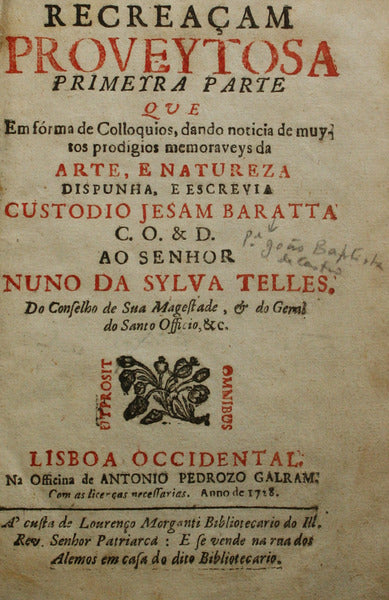 RECREAÇAM
PROVEYTOSA
PRIMEYRA PARTE
QUE
Em fórma de Colloquios, dando noticia de muy-
tos prodigios memoraveys da
ARTE, E NATUREZA
DISPUNHA, E ESCREVIA
CUSTODIO JESAM BARATTA
C. O. & D.
AO SENHOR
NUNO DA SYLVA TELLES.
Do Conselho de Sua Magestade, & do Geral
do Santo Officio, &c.
João Baptista
de Castro
UT PROSIT
OMNIBUS
LISBOA OCCIDENTAL.
Na Officina de ANTONIO PEDROZO GALRAM.
Com as licenças necessarias. Anno de 1728.
A' custa de Lourenço Morganti Bibliotecario do Ill.
Rev. Senhor Patriarca : E se vende na rua dos
Alemos em casa do dito Bibliotecario.